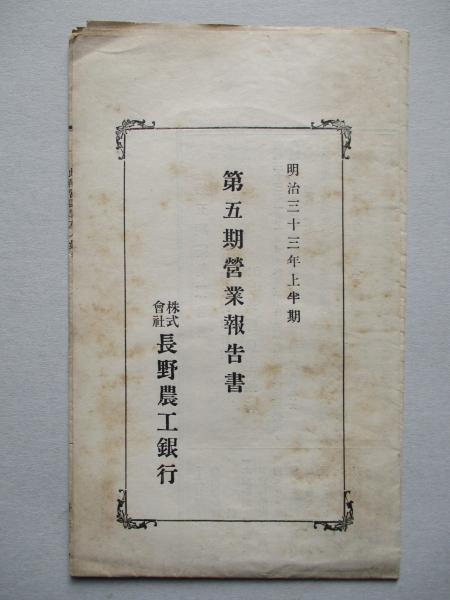 明治三十三年上半期
第五期營業報告書
株式會社長野農工銀行